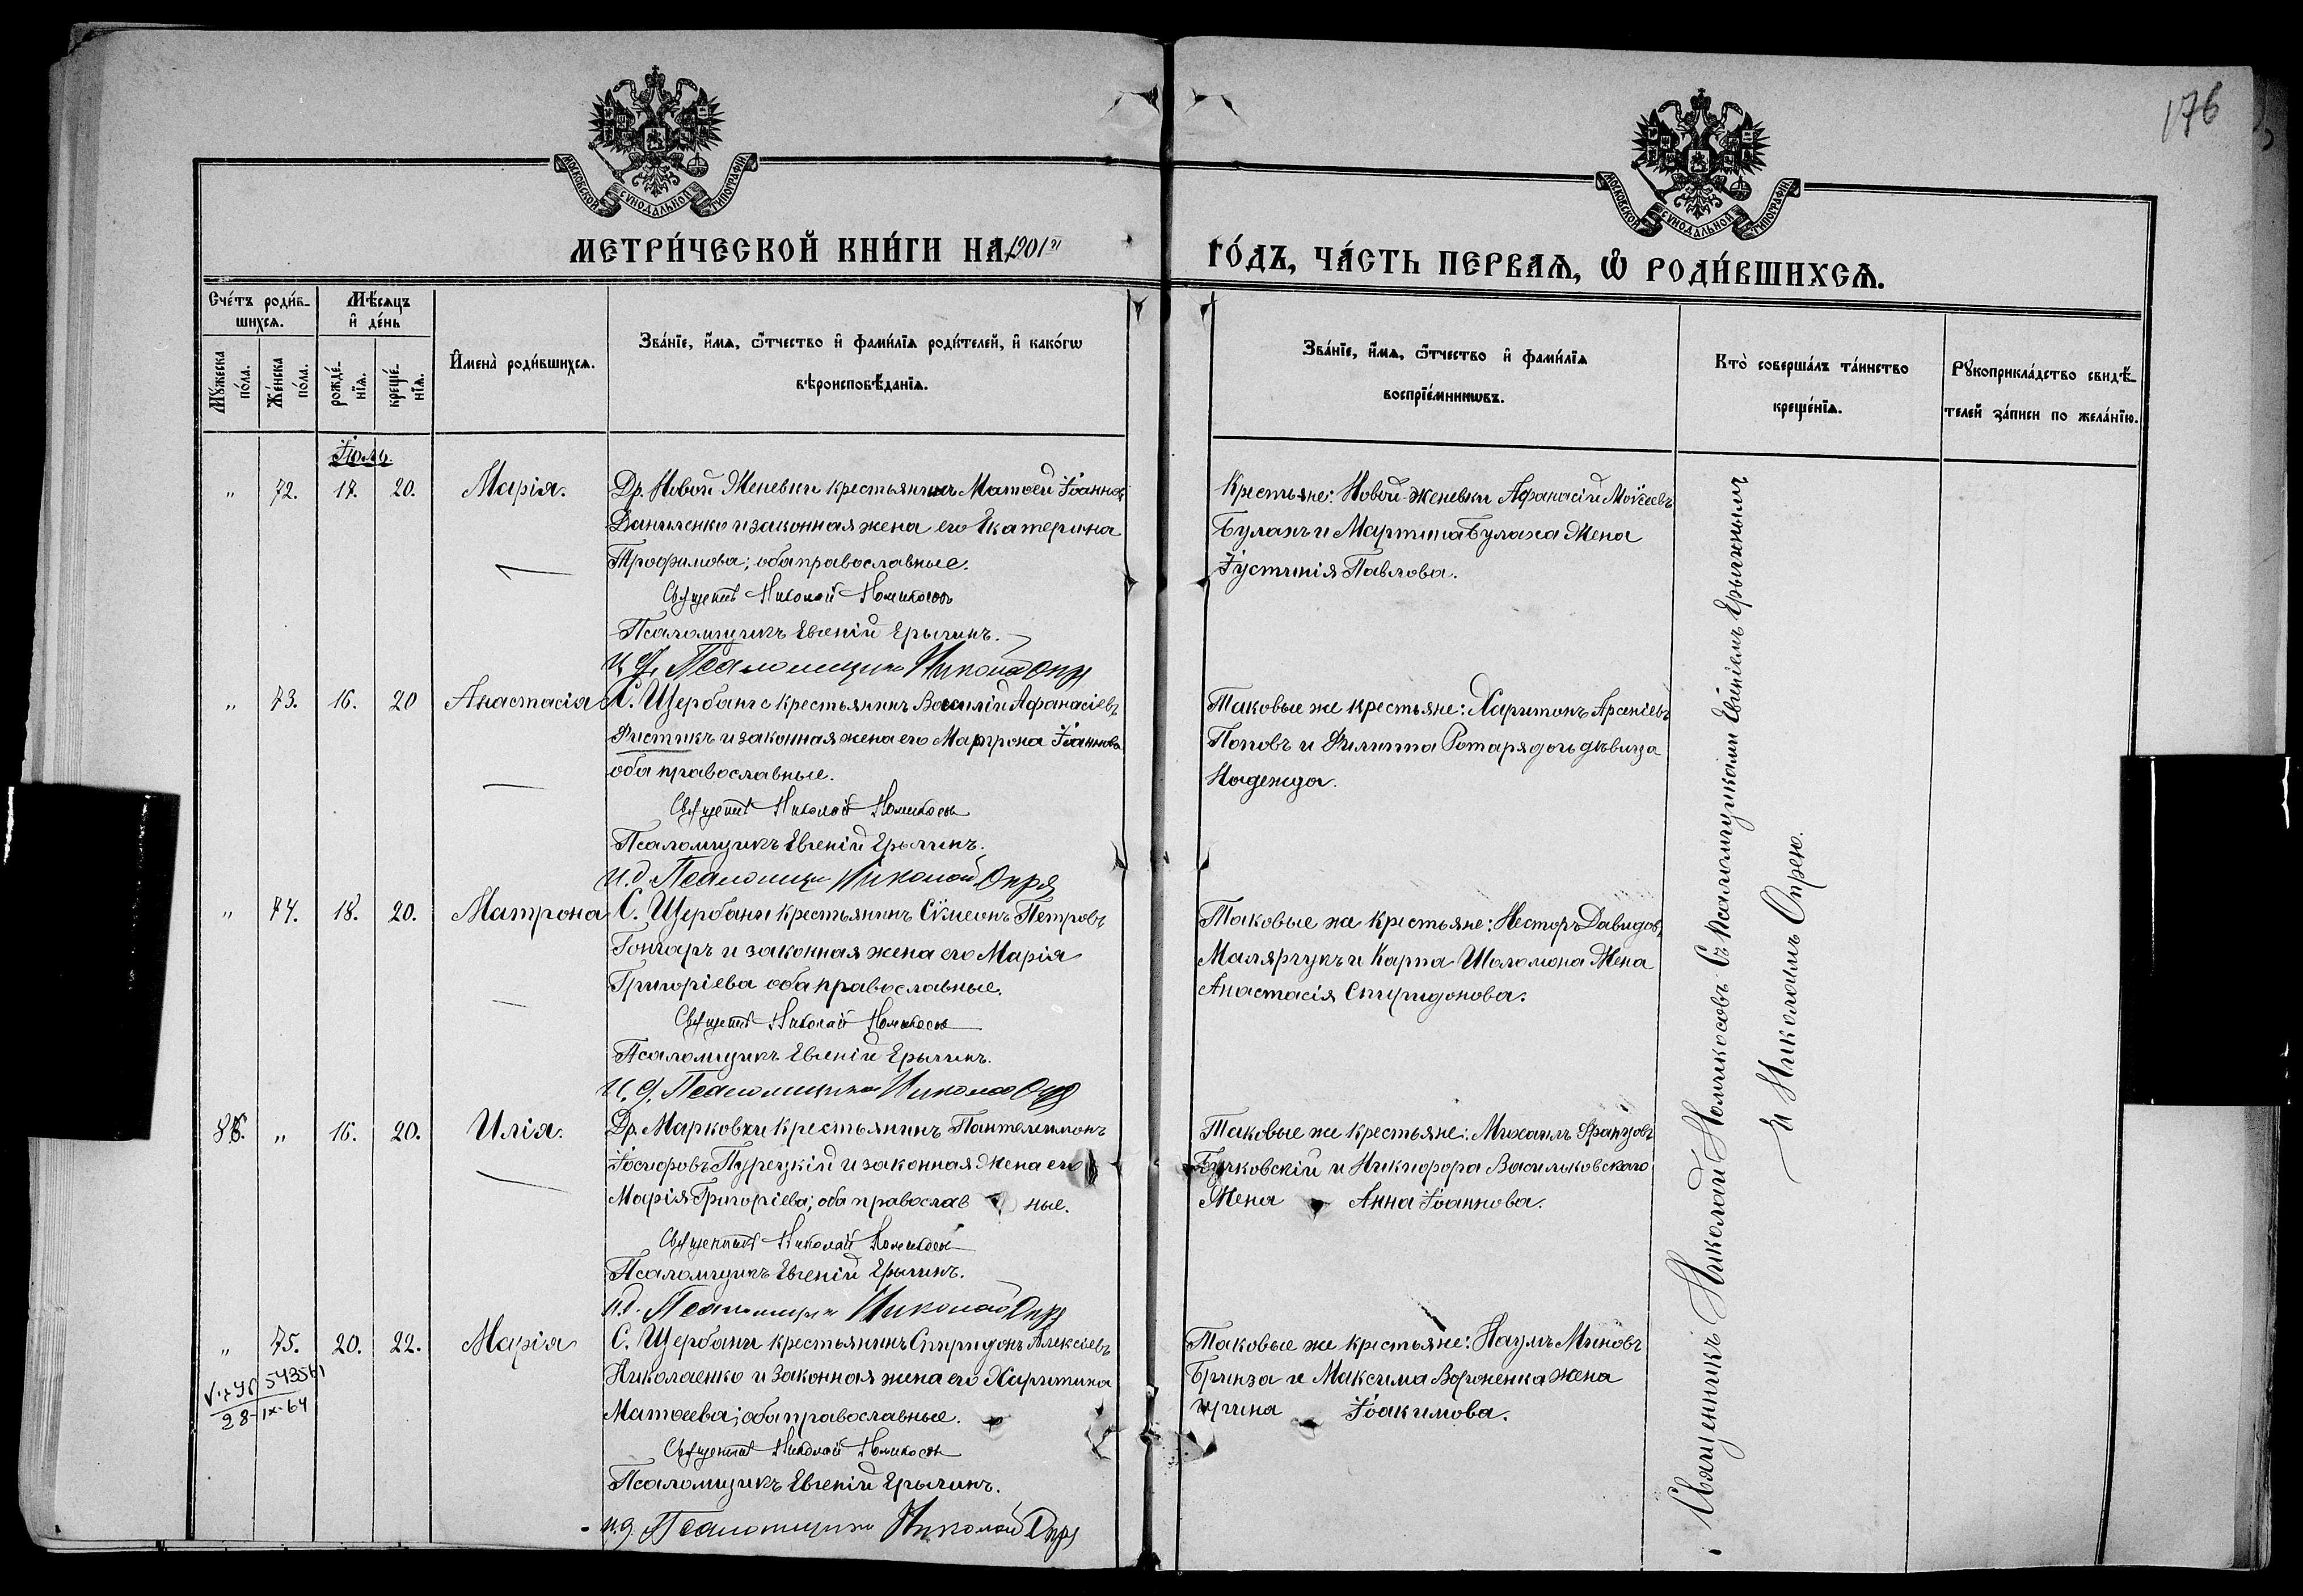 176
МОСКОВСКОЙ СѴНОДАЛЬНОЙ ТИПОГРАФІИ
МОСКОВСКОЙ СѴНОДАЛЬНОЙ ТИПОГРАФІИ
МЕТРИ́ЧЕСКОЙ КНИ́ГИ НА 1901й ГО́ДЪ, ЧА́СТЬ ПЕРВАѦ, Ѽ РОДИ́ВШИХСѦ.
Счéтъ роди́в-
шихсѧ.
Мꙋ́жеска
по́ла.
Же́нска
по́ла.
Мѣ́сѧцъ
и҆ де́нь
рожде́-
нїѧ.
креще́-
нїѧ.
И҆мена̀ роди́вшихсѧ.
Зва́нїе, и҆́мѧ, ѻ҆́тчество и҆ фами́лїѧ роди́телей, и҆ како́гѡ
вѣроисповѣ́данїѧ.
Зва́нїе, и҆́мѧ, ѻ҆́тчество и҆ фами́лїѧ
воспрїе́мникѡвъ.
Кто̀ соверша́лъ та́инство
креще́нїѧ.
Рꙋкоприкла́дство свидѣ́-
телей за́писи по жела́нїю.
Іюль.
„ 72. 17. 20. Марія.
Др. Новой Женевки крестьянинъ Матѳей Іоанновъ
Даниленко и законная жена его Екатерина
Трофимова; оба православные.
Священникъ Николай Номикосовъ
Псаломщикъ Евгеній Ерыгинъ.
и. д. Псаломщика Николай Опря
Крестьяне: Новой-Женевки Афанасій Моѵсеевъ
Буланъ и Мартина Булана жена
Іустинія Павлова.
„ 73. 16. 20 Анастасія
С. Щербани крестьянинъ Василій Афанасіевъ
Фистикъ и законная жена его Матрона Іоаннова
оба православные.
Священникъ Николай Номикосовъ
Псаломщикъ Евгеній Ерыгинъ.
и. д. Псаломщика Николай Опря
Таковые же крестьяне: Харитонъ Арсеніевъ
Поповъ и Филиппа Ротаря дочь дѣвица
Надежда.
„ 74. 18. 20. Матрона
С. Щербани крестьянинъ Сѵмеонъ Петровъ
Гончаръ и законная жена его Марія
Григоріева оба православные.
Священникъ Николай Номикосовъ
Псаломщикъ Евгеній Ерыгинъ.
и. д. Псаломщика Николай Опря
Таковые же крестьяне: Несторъ Давидовъ
Малярчукъ и Карпа Шоломона жена
Анастасія Спиридонова.
„ 16. 20. Илія.
Др. Марковки крестьянинъ Пантелеимонъ
Іосифовъ Турецкій и законная жена его
Марія Григоріева; оба православные.
Священникъ Николай Номикосовъ
Псаломщикъ Евгеній Ерыгинъ.
и. д. Псаломщика Николай Опря
Таковые же крестьяне: Михаилъ Францовъ
Гучковскій и Никифора Васильковскаго
жена Анна Іоаннова.
„ 75. 20. 22. Марія
С. Щербани крестьянинъ Спиридонъ Алексіевъ
Николаенко и законная жена его Харитина
Матѳеева; оба православные.
Священникъ Николай Номикосовъ
Псаломщикъ Евгеній Ерыгинъ.
и. д. Псаломщика Николай Опря
Таковые же крестьяне: Наумъ Миновъ
Бринза и Максима Вороненка жена
Ирина Іоакимова.
543561
28-IX-64
Священникъ Николай Номикосовъ Съ псаломщиками Евгеніемъ Ерыгинымъ
и Николаемъ Опрею.